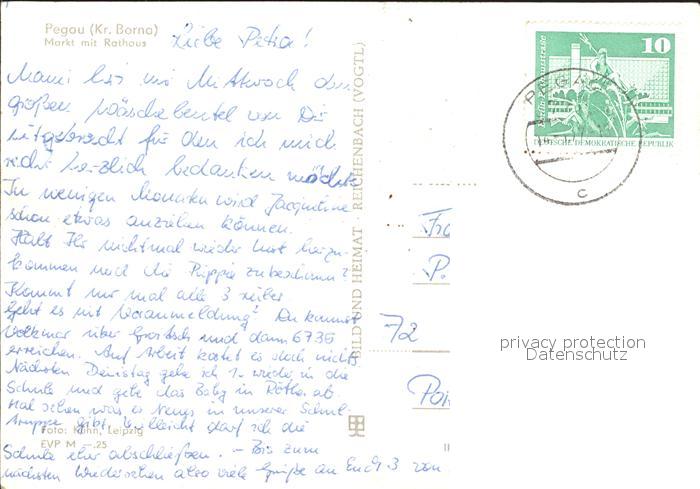 Pegau (Kr. Borna)
Markt mit Rathaus
Liebe Petra!
Mami hat mir Mittwoch den
großen Wäschebeutel von Dir
mitgebracht für den ich mich
recht herzlich bedanken möchte
In wenigen Monaten wird Jacqueline
schon etwas anziehen können.
Habt Ihr nicht mal wieder Lust herzu-
kommen und die Puppe zu beschauen?
Kommt nur mal alle 3 rüber
geht es mit Voranmeldung? Du kannst
Volkmar über und dann 6735
erreichen. Auf Arbeit kostet es doch nichts
Nächsten Dienstag gehe ich 1. wieder in die
Schule und gebe das Baby in Rötha ab.
Mal sehen was es Neues in unserer Schul-
gruppe gibt. Vielleicht darf ich die
Schule eher abschließen. – Bis zum
nächsten Wiedersehen also viele Grüße an Euch 3 von
Foto: Kühn, Leipzig
EVP M –.25
BILD UND HEIMAT · REICHENBACH (VOGTL)
10
DEUTSCHE DEMOKRATISCHE REPUBLIK
PEGAU
c
Fr
P.
72
privacy protection
Datenschutz